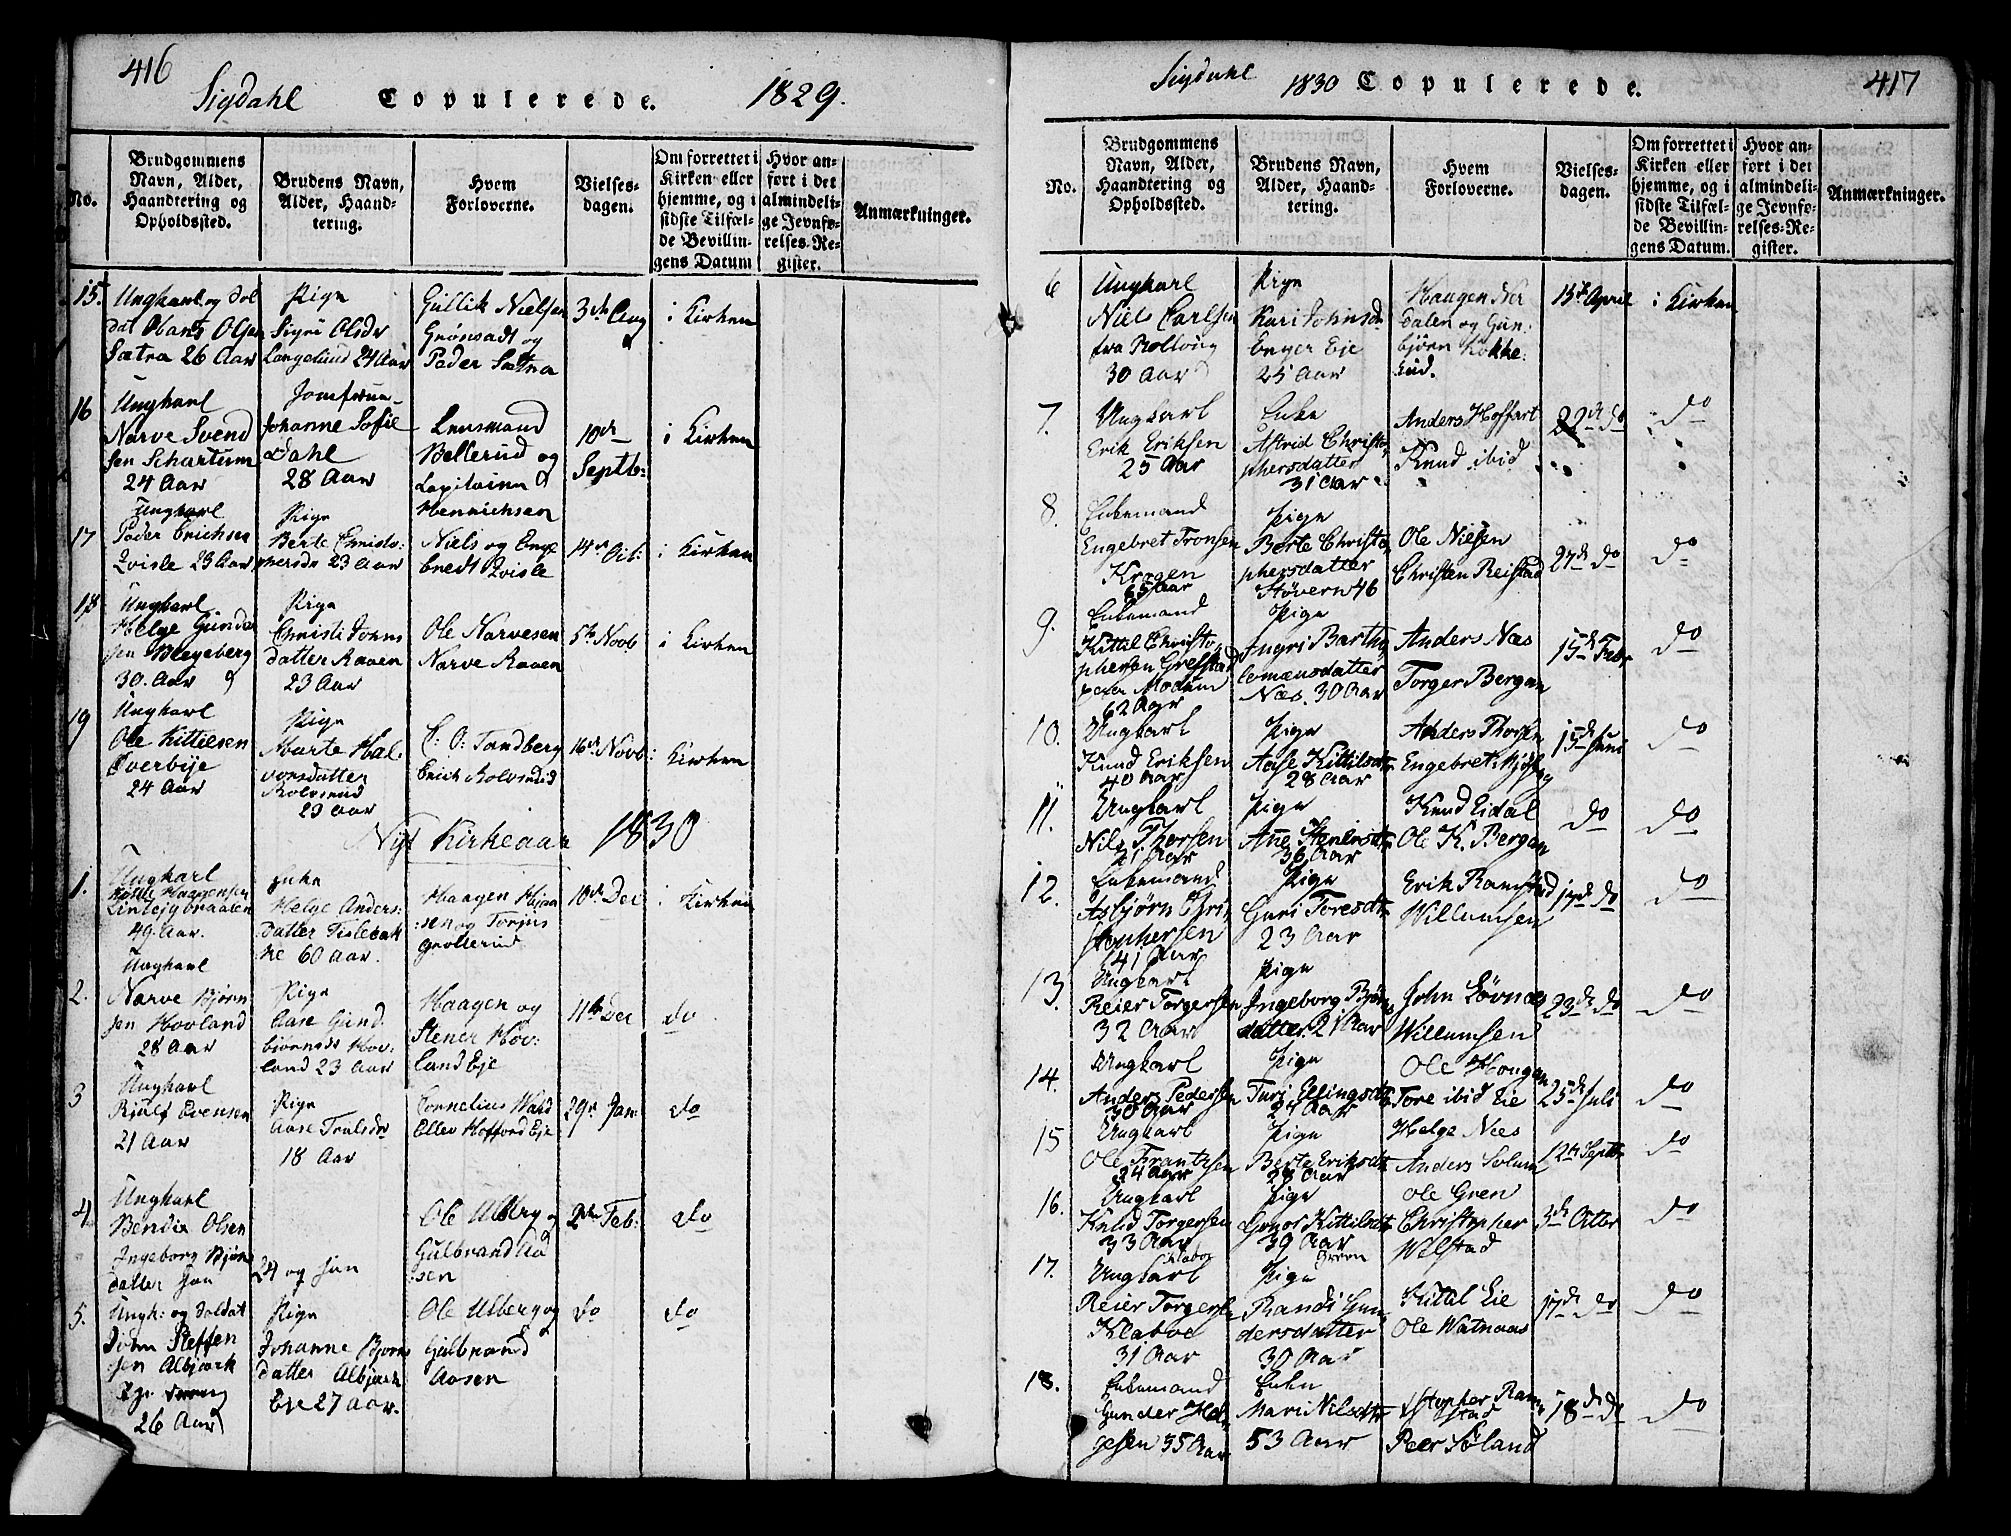 416
Sigdahl Copulerede. 1829.
No.
Brudgommens Navn, Alder, Haandtering og Opholdssted.
Brudens Navn, Alder, Haandtering.
Hvem Forloverne.
Vielses-dagen.
Om forrettet i Kirken eller hjemme, og i sidste Tilfælde Bevillingens Datum
Hvor anført i det almindelige Jevnførelses-Register.
Anmærkninger.
15.
Ungkarl og Sol
dat Ole
Sætra 26 Aar
Pige
Sigri Olsdr
Langelund 24 Aar
Gullik Nielsen
Grønsadt og
Peder Sætra
3de Aug
i Kirken
16
Ungkarl
Narve Svend
sen Schartum
24 Aar
Jomfrue
Johanne Sofie
Dahl
28 Aar
Lensmand
Bellerud og
Capitainen
Henrichsen
10de
Septb:
i Kirken
17
Ungkarl
Peder Erichsen
Qvisle 23 Aar
Pige
Berte Christo:
phersdr 23 Aar
Niels og Enge
bredt Qvisle
14de Octb:
i Kirken
18
Ungkarl
Helge Gunder
sen Blegeberg
30. Aar
Pige
Christi Johns
datter Raaen
23 Aar
Ole Narvesen
Narve Raaen
5te Novb
i Kirken
19
Ungkarl
Ole Kittilsen
Overbye
24 Aar
Pige
Marte Hal-
vorsdatter
Rolvsrud
23 Aar
C: O: Tandberg
Erich Rolvsrud
16de Novb:
i Kirken
Nyt Kirkeaar 1830
1.
Ungkarl
Kittil Haagensen
49. Aar.
Enke
Helge Anders:
datter Tislebak
ke 60 Aar.
Haagen
sen og Torjus
Grøslerud
10de Dec
i Kirken
2.
Ungkarl
Narve Bjørn
sen Hovland
28 Aar
Pige
Aase Gund
biørnsdr Hov-
land 23 Aar
Haagen og
Stener Hov:
land Eje
11te Dec
do
3
Ungkarl
Evensen
21 Aar
Pige
Aase Trulsdr
18 Aar
Cornelius Ward
Ellev Hofford Eje
29de Jan:
do
4.
Ungkarl
Bendix Olsen
Ingeborg Bjørn
datter han
24 og hun
Ole Ulberg og
Gulbrand Aa
sen
2den Feb:
do
5.
Ungk: og Soldat
John Steffen
sen Albjærk
Eje
26 Aar
Pige
Johanne Bjørns
datter Albjærk
Eje 27 Aar.
Ole Ulberg og
Gulbrand
Aasen
do
do
Sigdahl 1830 Copulerede.
417
No.
Brudgommens Navn, Alder, Haandtering og Opholdssted.
Brudens Navn, Alder, Haandtering.
Hvem Forloverne.
Vielses-dagen.
Om forrettet i Kirken eller hjemme, og i sidste Tilfælde Bevillingens Datum.
Hvor anført i det almindelige Jevnførelses-Register.
Anmærkninger.
6
Ungkarl
Niels Carlsen
fra Rollvug
30 Aar
Pige
Kari Johnsd.
Enger Eje
25 Aar
Haagen Ner
dalen og Gun-
bjørn Kokke-
rud.
15de April
i Kirken
7.
Ungkarl
Erik Eriksen
25 Aar
Enke
Astrid Christo
phersdatter
31 Aar
Anders Hoffart
Knud ibid
22de do
do
8.
Enkemand
Engebret Tronsen
Krogen
65 Aar
Pige
Berte Christo
phersdatter
Støvern 46
Ole Nielsen
Christen Reistad
27de do
do
9.
Enkemand
Kittil Christo
phersen Grefstad
paa Modum
62 Aar
Pige
Ingri Bartho
lomæusdatter
Næs. 30 Aar
Anders Næs
Torger Bergan
15de Febr
do
10.
Ungkarl
Knud Eriksen
40 Aar
Pige
Aase Kittilsdtr
28 Aar
Anders Thorsen
Engebret
15de Juni
do
11.
Ungkarl
Nils Thorsen
21 Aar
Pige
Ane Stenersdtr
36 Aar
Knud Eidal
Ole K. Bergan
do
do
12.
Enkemand
Asbjørn Chri
stophersen
41 Aar
Pige
Guri Toresdtr
23 Aar
Erik Ramstad
Willumsen
17de do
do
13.
Ungkarl
Reier Torgersen
32 Aar
Pige
Ingeborg Bjørns
datter. 21 Aar
John Løvnæs
Willumsen
23de do
do
14.
Ungkarl
Anders Pedersen
30 Aar
Pige
Turi Ellingsdtr
24 Aar
Ole Hougan
Tore ibid Eie
25de Juli
do
15
Ungkarl
Ole Frantzsen
24 Aar
Pige
Berte Eriksdtr
28 Aar
Helge Næs
Anders Solum
12te Septbr
do
16.
Ungkarl
Knud Torgersen
33 Aar
Pige
Gonor Kittilsdtr
39 Aar
Ole Gren
Christopher
Wilstad
3de Octbr
do
17.
Ungkarl
Reier Torgersen
Klaboe
31 Aar
Pige
Randi Gun
dersdatter
30 Aar
Kittil Eie
Ole Watnaas
17de do
do
18.
Enkemand
Gunder Hel-
gesen 35 Aar
Enke
Mari Nilsdtr
53 Aar
Stopher Ram-
stad
Peer Søland
18de do
do